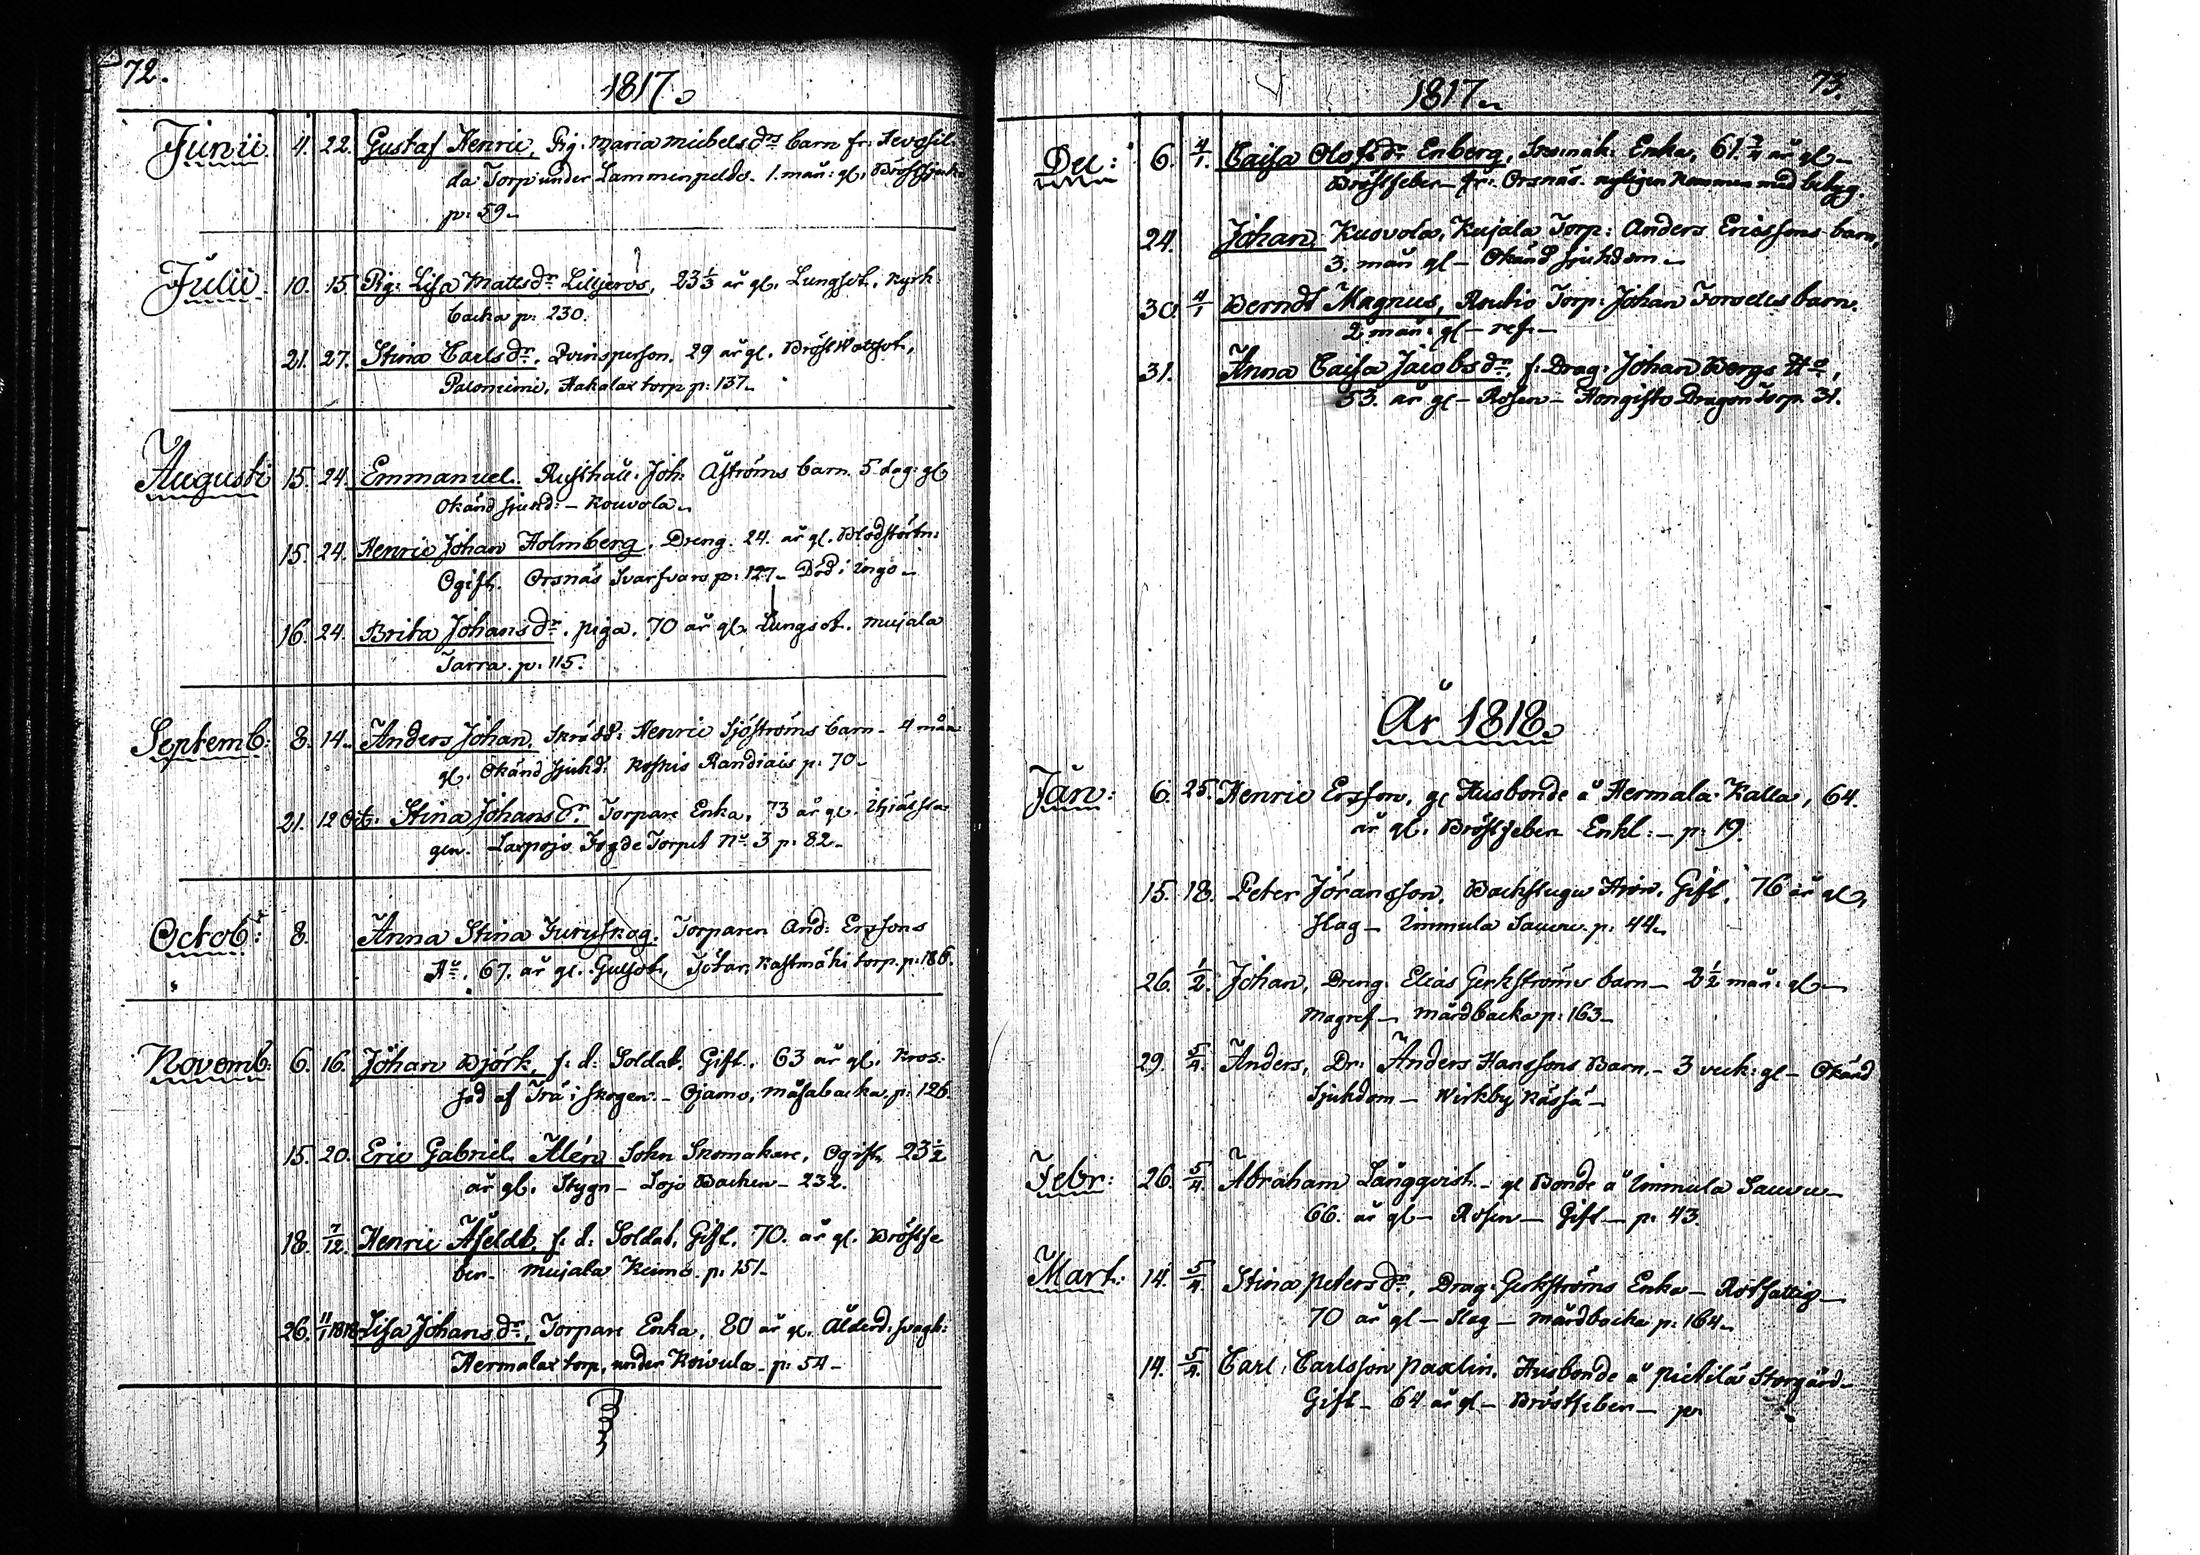 72.
1817.
Junii. 4. 22. Gustaf Henric, Pig: Maria Michelsdr barn fr:
da Torp under Lammenpeldo. 1. mån: gl. Bröstsjuka
p: 59.
Julii. 10. 15. Pig: Lisa Mattsdr Liljeros, 23 1/3 år gl. Lungsot. Kyrk-
backa p: 230.
21. 27. Stina Carlsdr. Qvinsperson. 29 år gl. Bröst Wattsot,
Paloniemi, Hakalax torp p: 137.
Augusti 15. 24. Emmanuel. Rusthåll: Joh: Åströms barn. 5 dag: gl
Okänd sjukd: – Kouvola.
15. 24. Henric Johan Holmberg. Dreng. 24. år gl. Blodstörtn:
Ogift. Orsnäs Svarfvars p: 127. Död i Ingo –
16. 24. Brita Johansdr. piga. 70 år gl. Lungsot. Mujala
Jarra. p: 115.
Septemb: 8. 14. Anders Johan. Skrädd: Henric Sjöströms barn – 4 mån
gl. Okänd sjukd: Koskis Randiais p: 70.
21. 12 Oct: Stina Johansdr. Torpare Enka, 73 år gl.
gen. Laxpojo Fogde Torpet No 3 p: 82.
Octob: 8. Anna Stina Furuskog. Torparen And: Erssons
Hu. 67. år gl. Gulsot, Tötar, Kastmäki torp. p: 186.
Novemb: 6. 16. Johan Björk, f. d: Soldat, Gift. 63 år gl. Kros-
sad af Trä i skogen. – Ojamo, Måsabacka, p: 126.
15. 20. Eric Gabriel Alén John Skomakare, Ogift, 23 1/2
år gl. Stygn – Lojo Backen – 232.
18. 7/12. Henric Åfeldt, f. d: Soldat, Gift. 70. år gl. Bröstfe
ber. Mujala Keimo. p: 151.
26. 11/1 1818 Lisa Johansdr, Torpare Enka, 80 år gl. Ålderd: svagh:
Hermalax torp, under Koivula – p: 54 –
73.
1817.
Dec: 6. 4/1. Caisa Olofsdr Enberg, Enka, 61 3/4 år gl –
Bröstfeber – fr: Orsnäs. nyligen kommen med betyg.
24. Johan, Kuovola, Kujala Torp: Anders Ericssons barn,
3. mån gl – Okänd sjukdom –
30. 4/1 Berndt Magnus, Routio Torp: Johan Forselles barn.
2. mån. gl – ref. –
31. Anna Caisa Jacobsdr, f: Drag: Johan Bergs Hu,
53. år gl – Rosen – Hongisto Dragon Torp 31.
År 1818.
Jan: 6. 25. Henric Ersson, gl Husbonde å Hermala Kalla, 64.
år gl. Bröstfeber Enkl: – p: 19.
15. 18. Peter Jöransson, Backstugu Hion. Gift. 76 år gl,
Slag – Immula Sauvu. p: 44.
26. 1/2. Johan, Dreng: Elias Gerkströms barn – 2 1/2 mån: gl –
Magref – Mårdbacka p: 163 –
29. 5/4. Anders, Dr: Anders Hanssons Barn. – 3 veck: gl – Okänd
Sjukdom – Wirkby Kässä –
Febr: 26. 5/4 Abraham Långqvist. – gl Bonde å Immula Sauvu –
66. år gl – Rosen – Gift – p: 43.
Mart: 14. 5/4. Stina Petersdr, Drag: Gerkströms Enka – Rotfattig –
70 år gl – Slag – Mårdbacka p: 164.
14. 5/4. Carl Carlsson Paxlin. Husbonde å Pietilä Storgård –
Gift – 64 år gl – Bröstfeber – p: